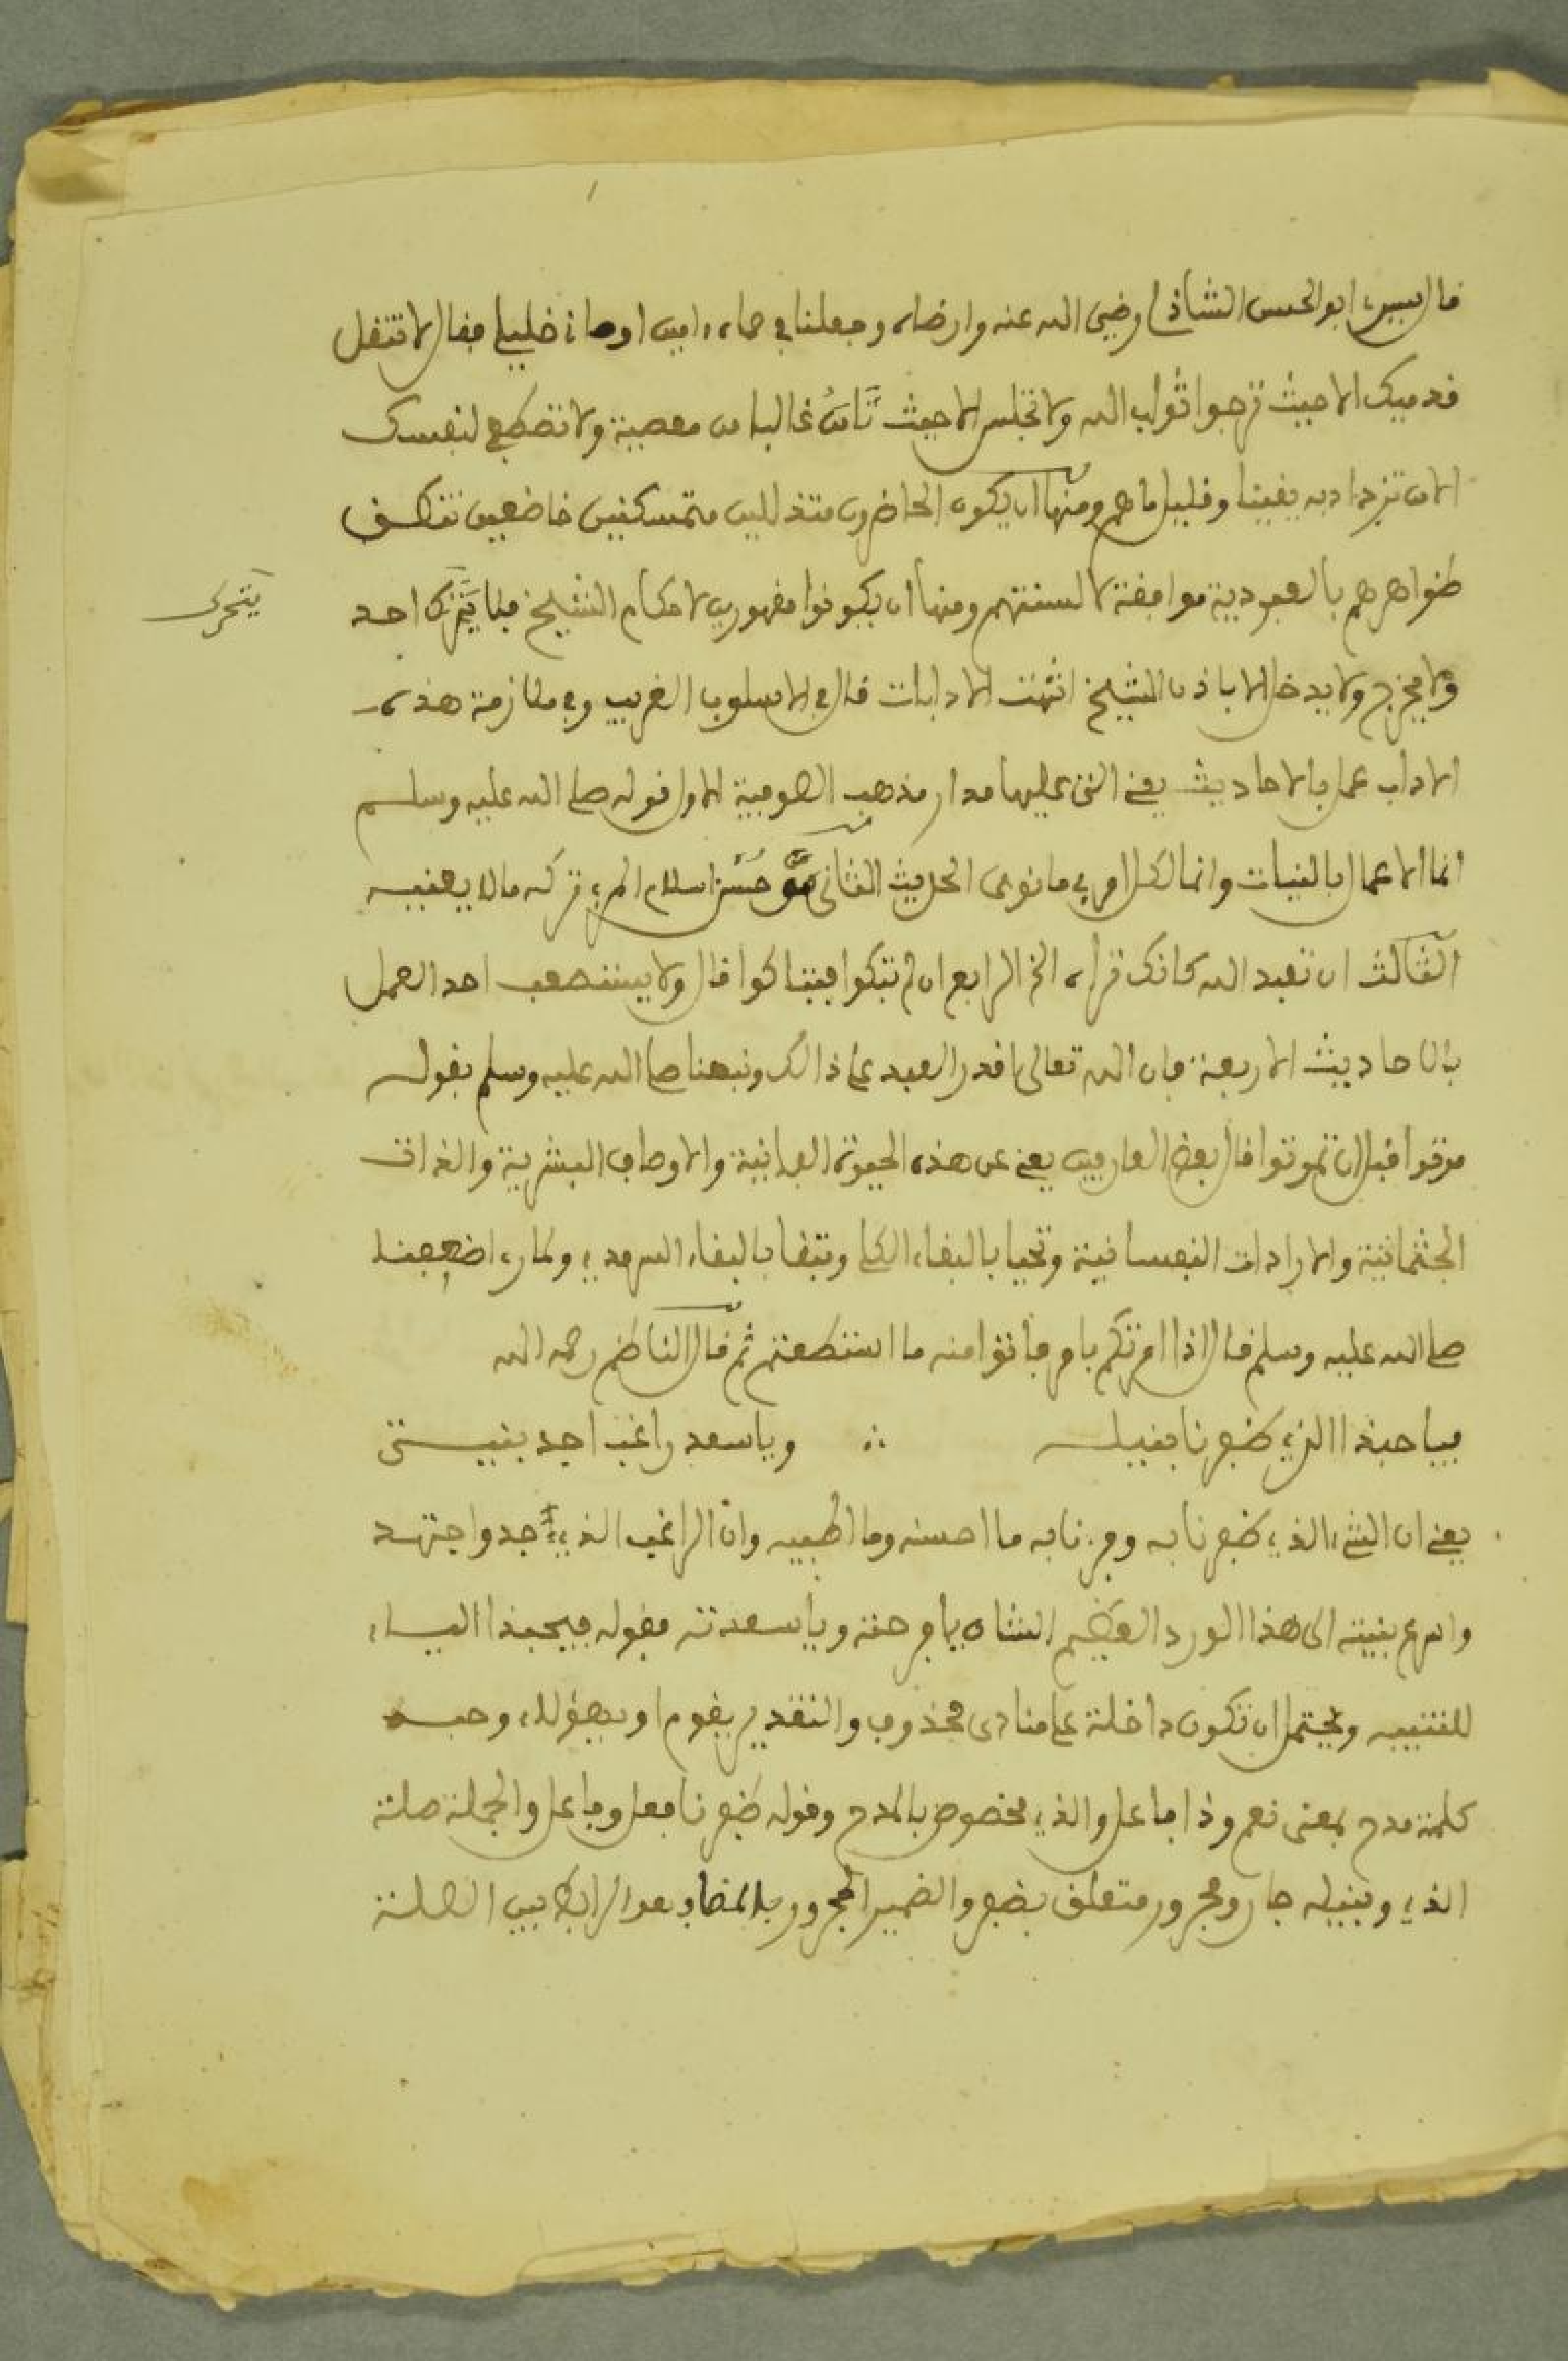 قال سيدي ابو الحسن الشاذلي رضي الله عنه وارضاه وجعلنا في حماه ءامين اوصاني خليلي فقال لا تنقل
قدميك الا حيث ترجوا ثواب الله ولا تجلس الا حيث تَامَنُ غالبا من معصية ولا تصطحب لنفسك
الا من تزداد به يقينا وقليل ما هم ومنها ان يكون الحاضرون متذللين متمسكنين خاضعين تتكيف
ظواهرهم بالعبودية موافقة لالسنتهم ومنها ان يكونوا مقهورين لاحكام الشيخ فلا يَتَرَك احد
يتحرك
ولا يخرج ولا يدخل الا باذن الشيخ انتهت الادابات قال في الاسلوب الغريب وفي ملازمة هذه
الاداب عمل بالاحاديث يعني التي عليها مدار مذهب الصوفية الاول قوله صلى الله عليه وسلم
انما الاعمال بالنيات وانما لكل امرئ ما نوى الحديث الثاني من حُسْن اسلام المرء تركه ما لا يعنيه
الثالث ان تعبد الله كانك تراه الخ الرابع ان لم تبكوا فتباكوا قال ولا يستصعب احد العمل
بالاحاديث الاربعة فان الله تعالى اقدر العبد على ذالك ونبهنا صلى الله عليه وسلم بقوله
موتوا قبل ان تموتوا قال بعض العارفين يعني عن هذه الحيوة الفانية والاوصاف البشرية والذات
الجثمانية والارادات النفسانية وتحيا بالبقاء الكلي وتبقا بالبقاء السرمدي ولما رءا ضعفنا
صلى الله عليه وسلم قال اذا امرتكم بامر فاتوا منه ما استطعتم ثم قال الناظم رحمه الله
فيا حبذا الذي ظفرنا بنيله ∴ ويا سعد راغب اجد بنيتي
يعني ان الشيء الذي ظفرنا به وفزنا به ما احسنه وما اطيبه وان الراغب الذي أجد واجتهد
واسرع بنيته الى هذا الورد العظيم الشان يا فرحته ويا سعدته فقوله فيحبذا الياء
للتنبيه ويحتمل ان تكون داخلة على منادى محذوف والتقدير يقوم او يهؤلاء وحب
كلمة مدح بمعنى نعم وذا فاعل والذي مخصوص بالمدح وقوله ظفرنا فعل وفاعل والجملة صلة
الذي وبنيله جار ومجرور متعلق بظفر والضمير المجرور بالمضاف هو الرابط بين الصلة